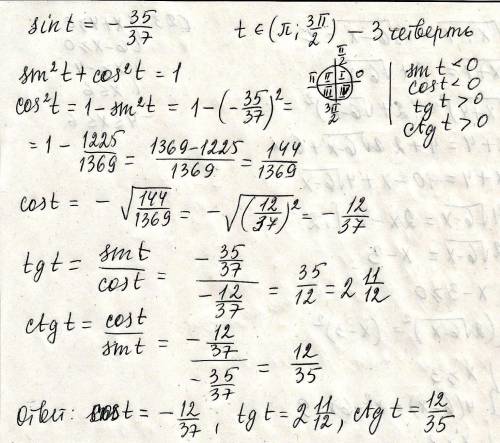 sin t = - 35/37    t ∈ (π; 3π/2) – 3 четверть
sin²t + cos²t = 1
π/2
π II I 0
III IV
3π/2
sin t < 0
cos t < 0
tg t > 0
ctg t > 0
cos²t = 1 - sin²t = 1 - (- 35/37)² =
= 1 - 1225/1369 = (1369 - 1225)/1369 = 144/1369
cos t = - √(144/1369) = - √((12/37)²) = - 12/37
tg t = sin t / cos t = (- 35/37) / (- 12/37) = 35/12 = 2 11/12
ctg t = cos t / sin t = (- 12/37) / (- 35/37) = 12/35
Ответ: cos t = - 12/37; tg t = 2 11/12, ctg t = 12/35